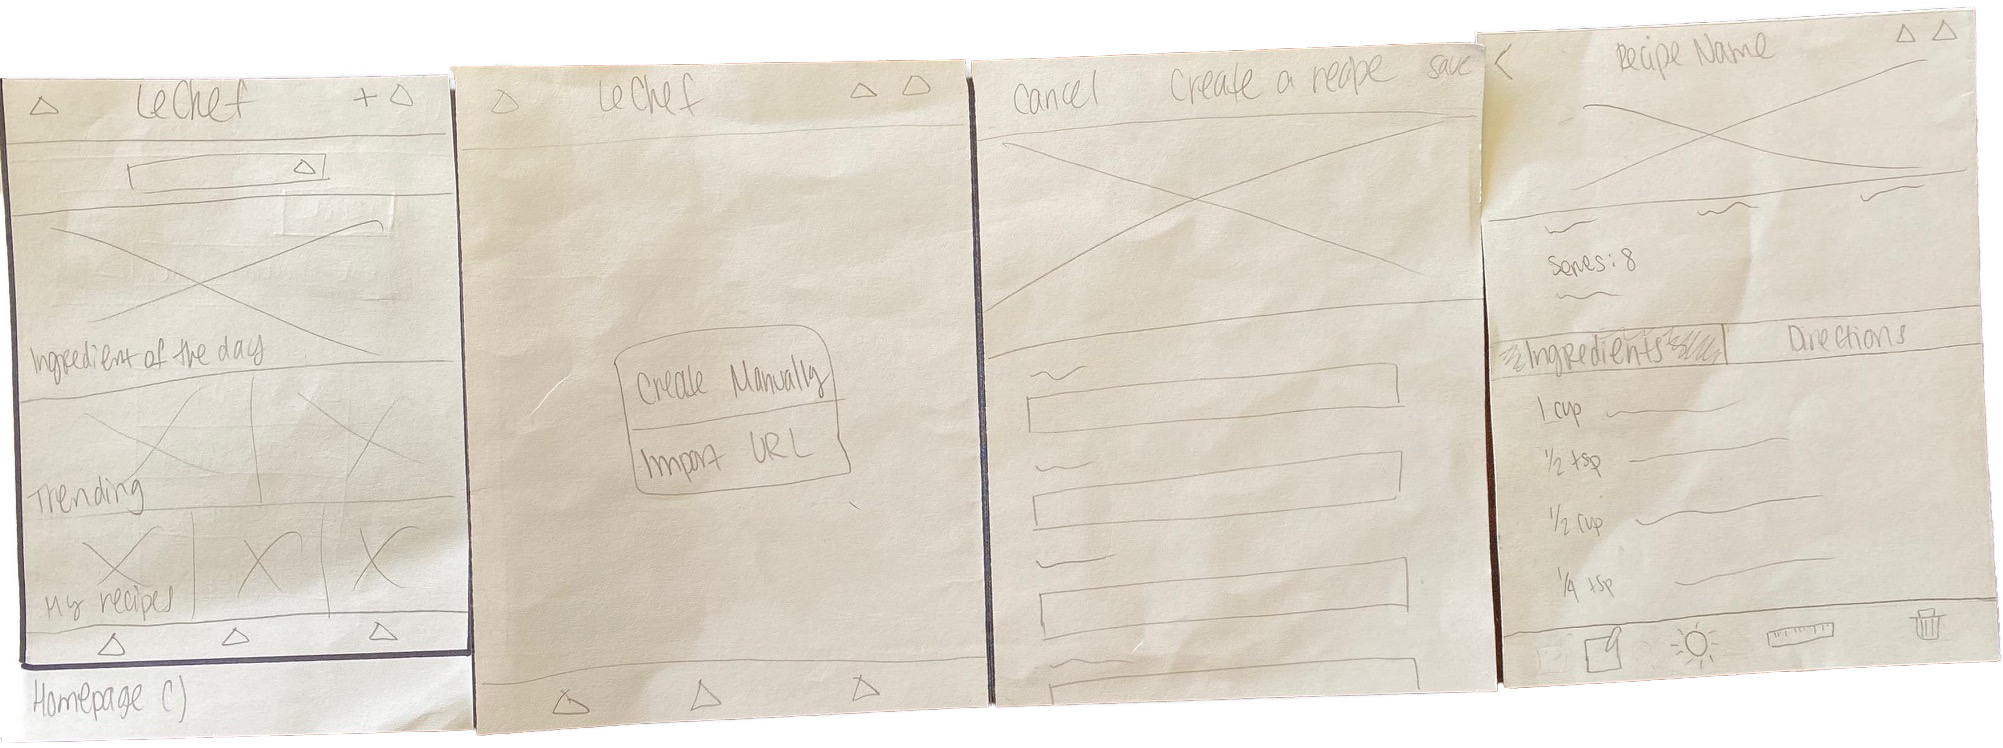 LeChef +
Ingredient of the day
Trending
My recipes
Homepage C)
LeChef
Create Manually
Import URL
Cancel Create a recipe save
< Recipe Name
Serves: 8
Ingredients Directions
1 cup
1/2 tsp
1/2 cup
1/4 tsp